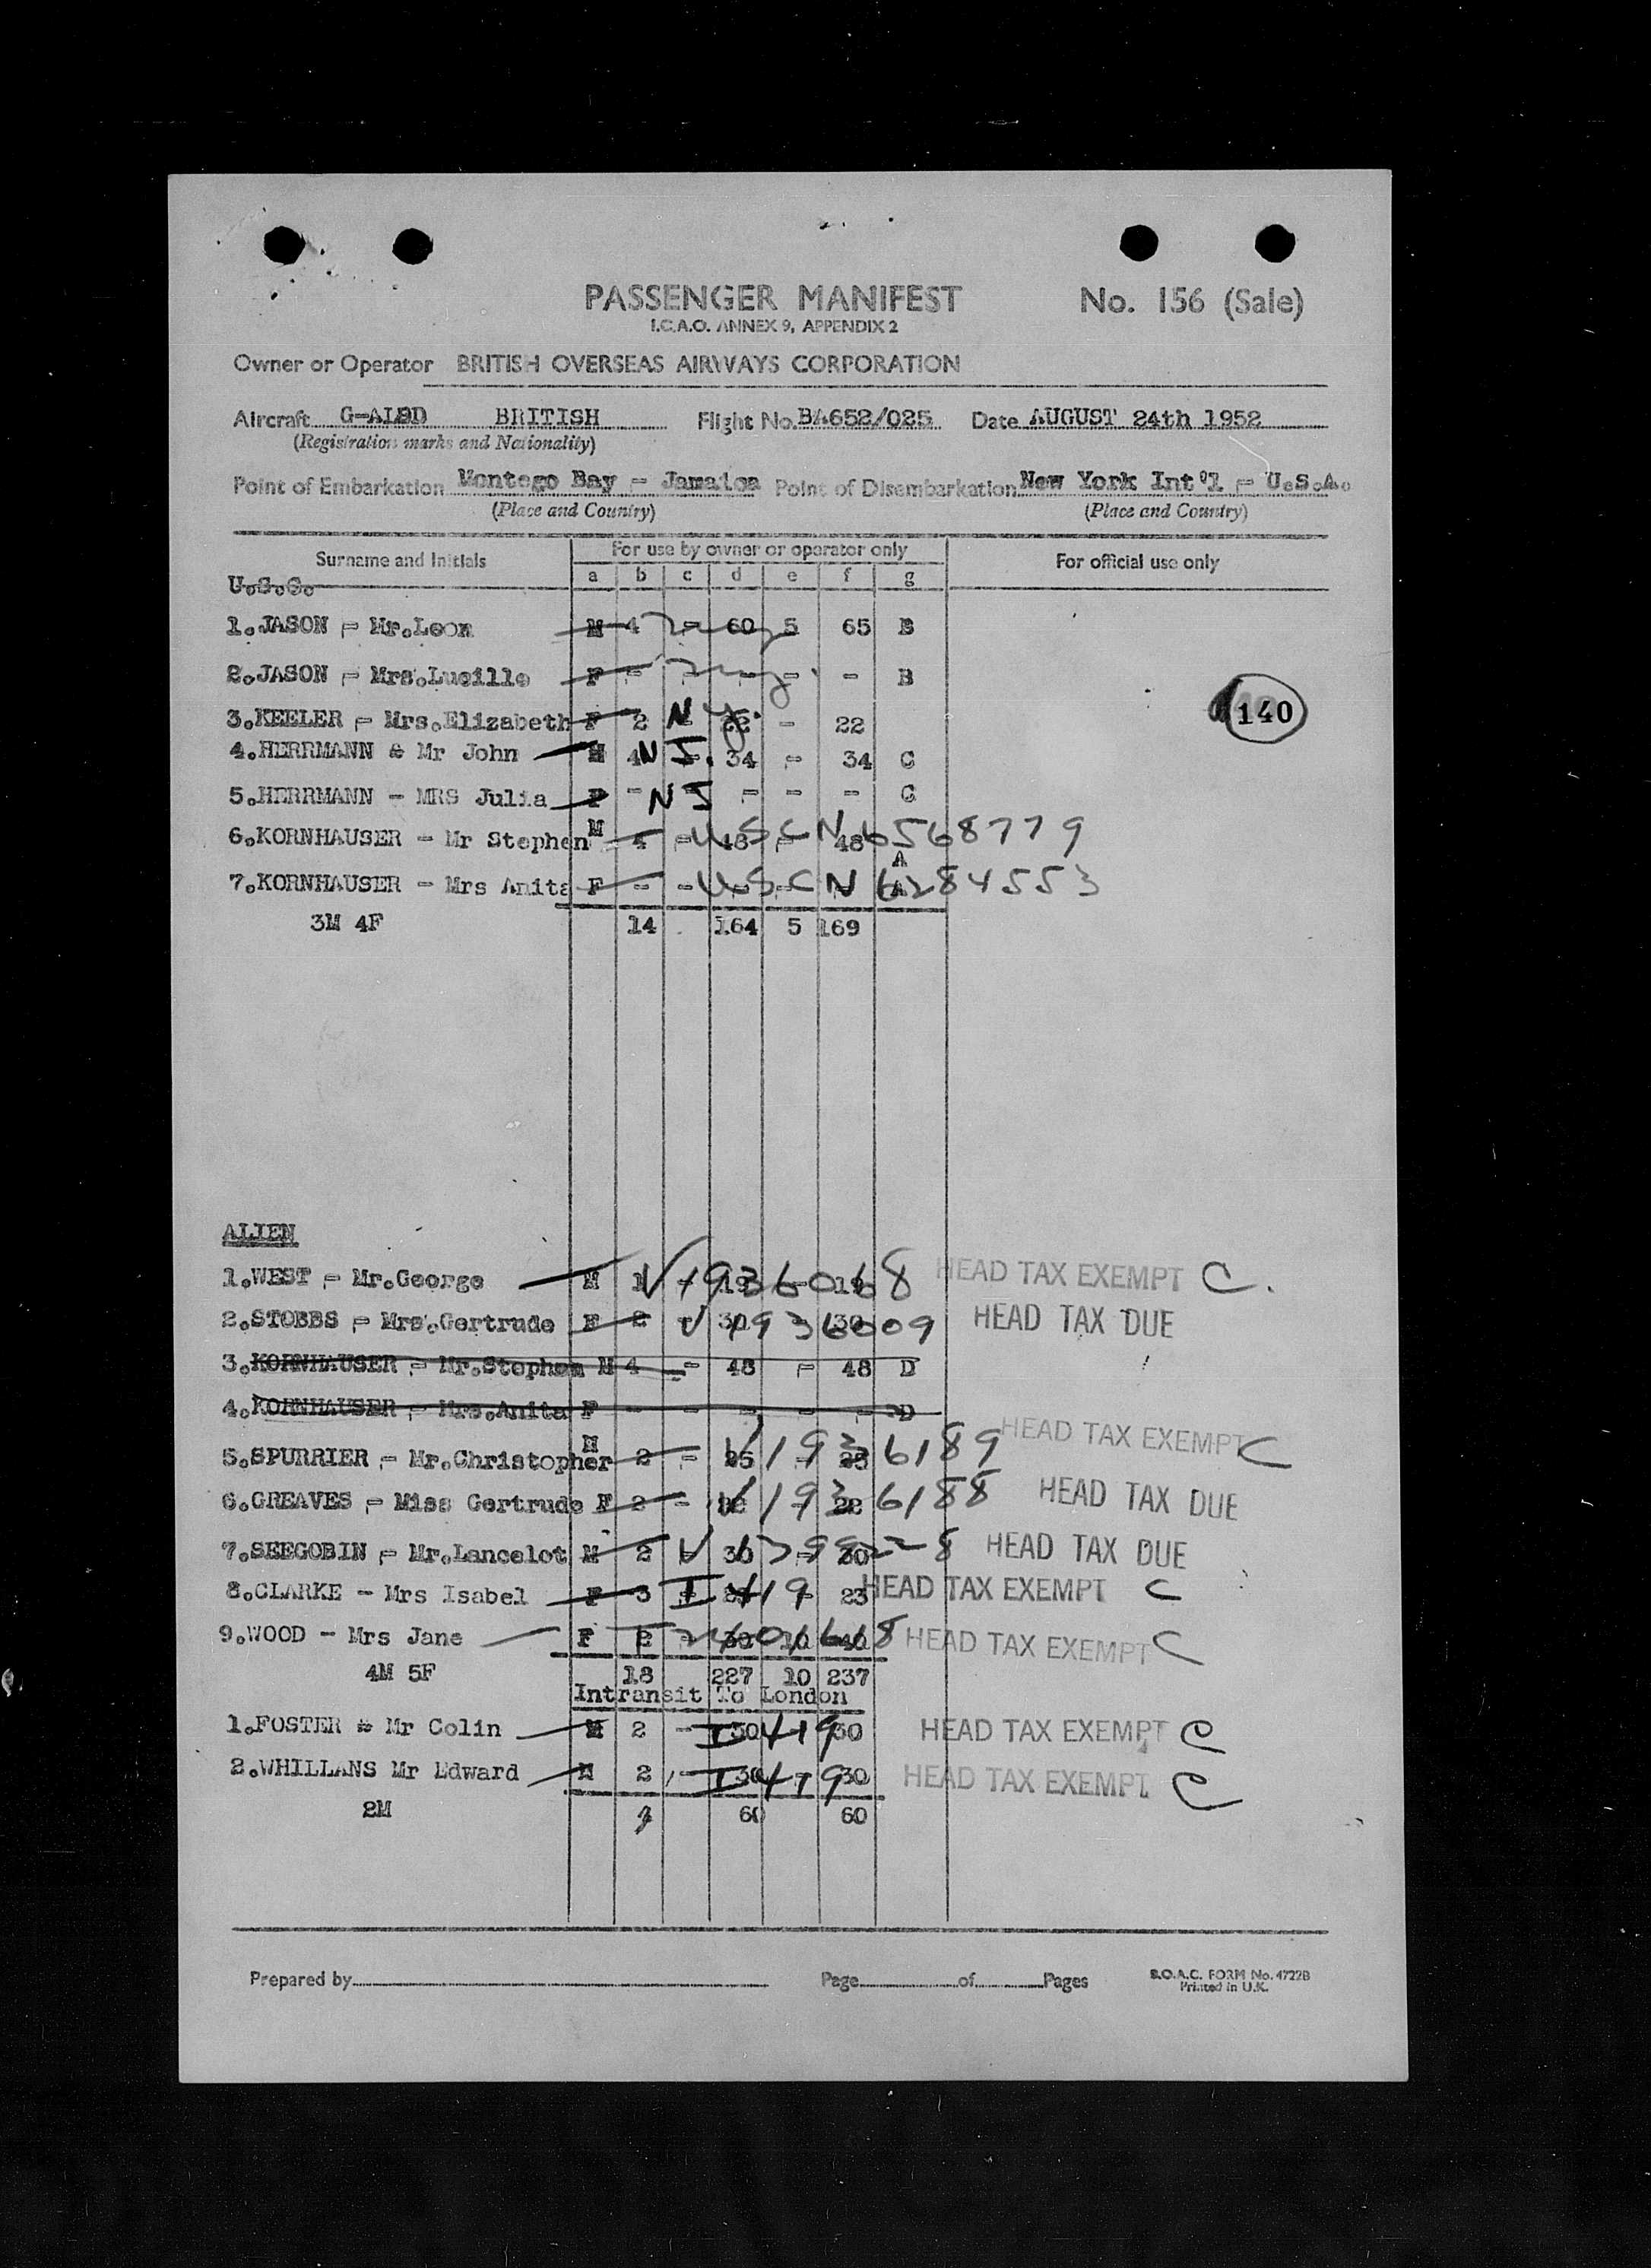 PASSENGER MANIFEST No. 156 (Sale)
I.C.A.O. ANNEX 9, APPENDIX 2
Owner or Operator BRITISH OVERSEAS AIRWAYS CORPORATION
Aircraft BRITISH Flight No. BA652/025 Date AUGUST 24th 1952
(Registration marks and Nationality)
Point of Embarkation Montego Bay - Jamaica Point of Disembarkation New York Int'l - U.S.A.
(Place and Country) (Place and Country)
Surname and Initials For use by owner or operator only For official use only
a b c d e f g
U.S.C.
1.JASON - Mr.Leon M 4 - 60 5 65 B
2.JASON - Mrs.Lucille F - - - - B
140
3.KEELER - Mrs.Elizabeth F 2 N.Y. 22 - 22
4.HERRMANN & Mr John M 4 N J. 34 - 34 C
5.HERRMANN - MRS Julia F - N J - - - C
6.KORNHAUSER - Mr Stephen M 4 - 48 - 48 A USCN 6568779
7.KORNHAUSER - Mrs Anita F - - USCN 6284553
3M 4F 14 164 5 169
ALIEN
1.WEST - Mr.George M 1 - V 1936068 HEAD TAX EXEMPT C.
2.STOBBS - Mrs.Gertrude F 2 - 30 30 V 1936009 HEAD TAX DUE
3.KORNHAUSER - Mr.Stephen M 4 - 48 - 48 D
4.KORNHAUSER - Mrs.Anita F - - - - - D
5.SPURRIER - Mr.Christopher M 2 - 25 - 25 V 1936189 HEAD TAX EXEMPT C
6.GREAVES - Miss Gertrude F 2 - 22 - 22 V 1936188 HEAD TAX DUE
7.SEEGOBIN - Mr.Lancelot M 2 30 - 30 HEAD TAX DUE
8.CLARKE - Mrs Isabel F 3 - - 23 I 419 HEAD TAX EXEMPT C
9.WOOD - Mrs Jane F 2 - 30 10 40 HEAD TAX EXEMPT C
4M 5F 18 227 10 237
Intransit To London
1.FOSTER & Mr Colin M 2 - 30 30 I 419 HEAD TAX EXEMPT C
2.WHILLANS Mr Edward M 2 - 30 - 30 I 419 HEAD TAX EXEMPT C
2M 4 60 60
Prepared by Page of Pages B.O.A.C. FORM No. 4722B
Printed in U.K.